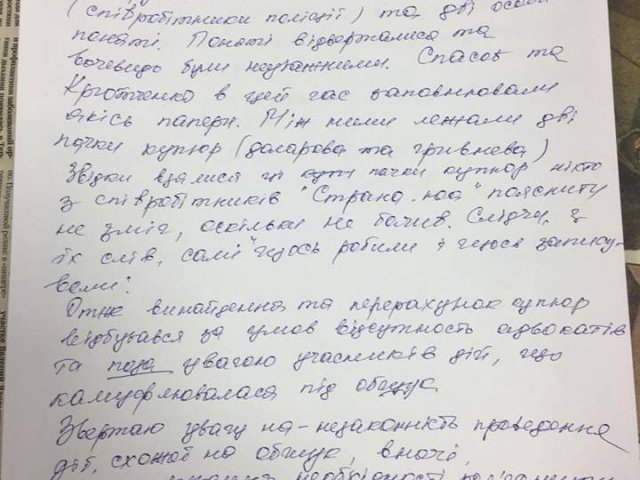 (співробітники поліції) та дві особи
поняті. Поняті відверталися та
вочевидь були неуважними. Спасов та
Кротченко в цей час заповнювали
якісь папери. Між ними лежали дві
пачки купюр (доларова та гривнева)
Звідки взялися ці пачки купюр ніхто
з співробітників "Страна.юа" пояснити
не зміг, оскільки не бачив. Слідчі, з
їх слів, самі "щось робили і щось запису-
вали".
Отже винайдення та перерахунок купюр
відбувався за умов відсутность адвокатів
та поза увагою учасників дій, що
камуфлювалася під обшук
Звертаю увагу на незаконність проведення
дії, схожої на обшук, вночі,
необхідності